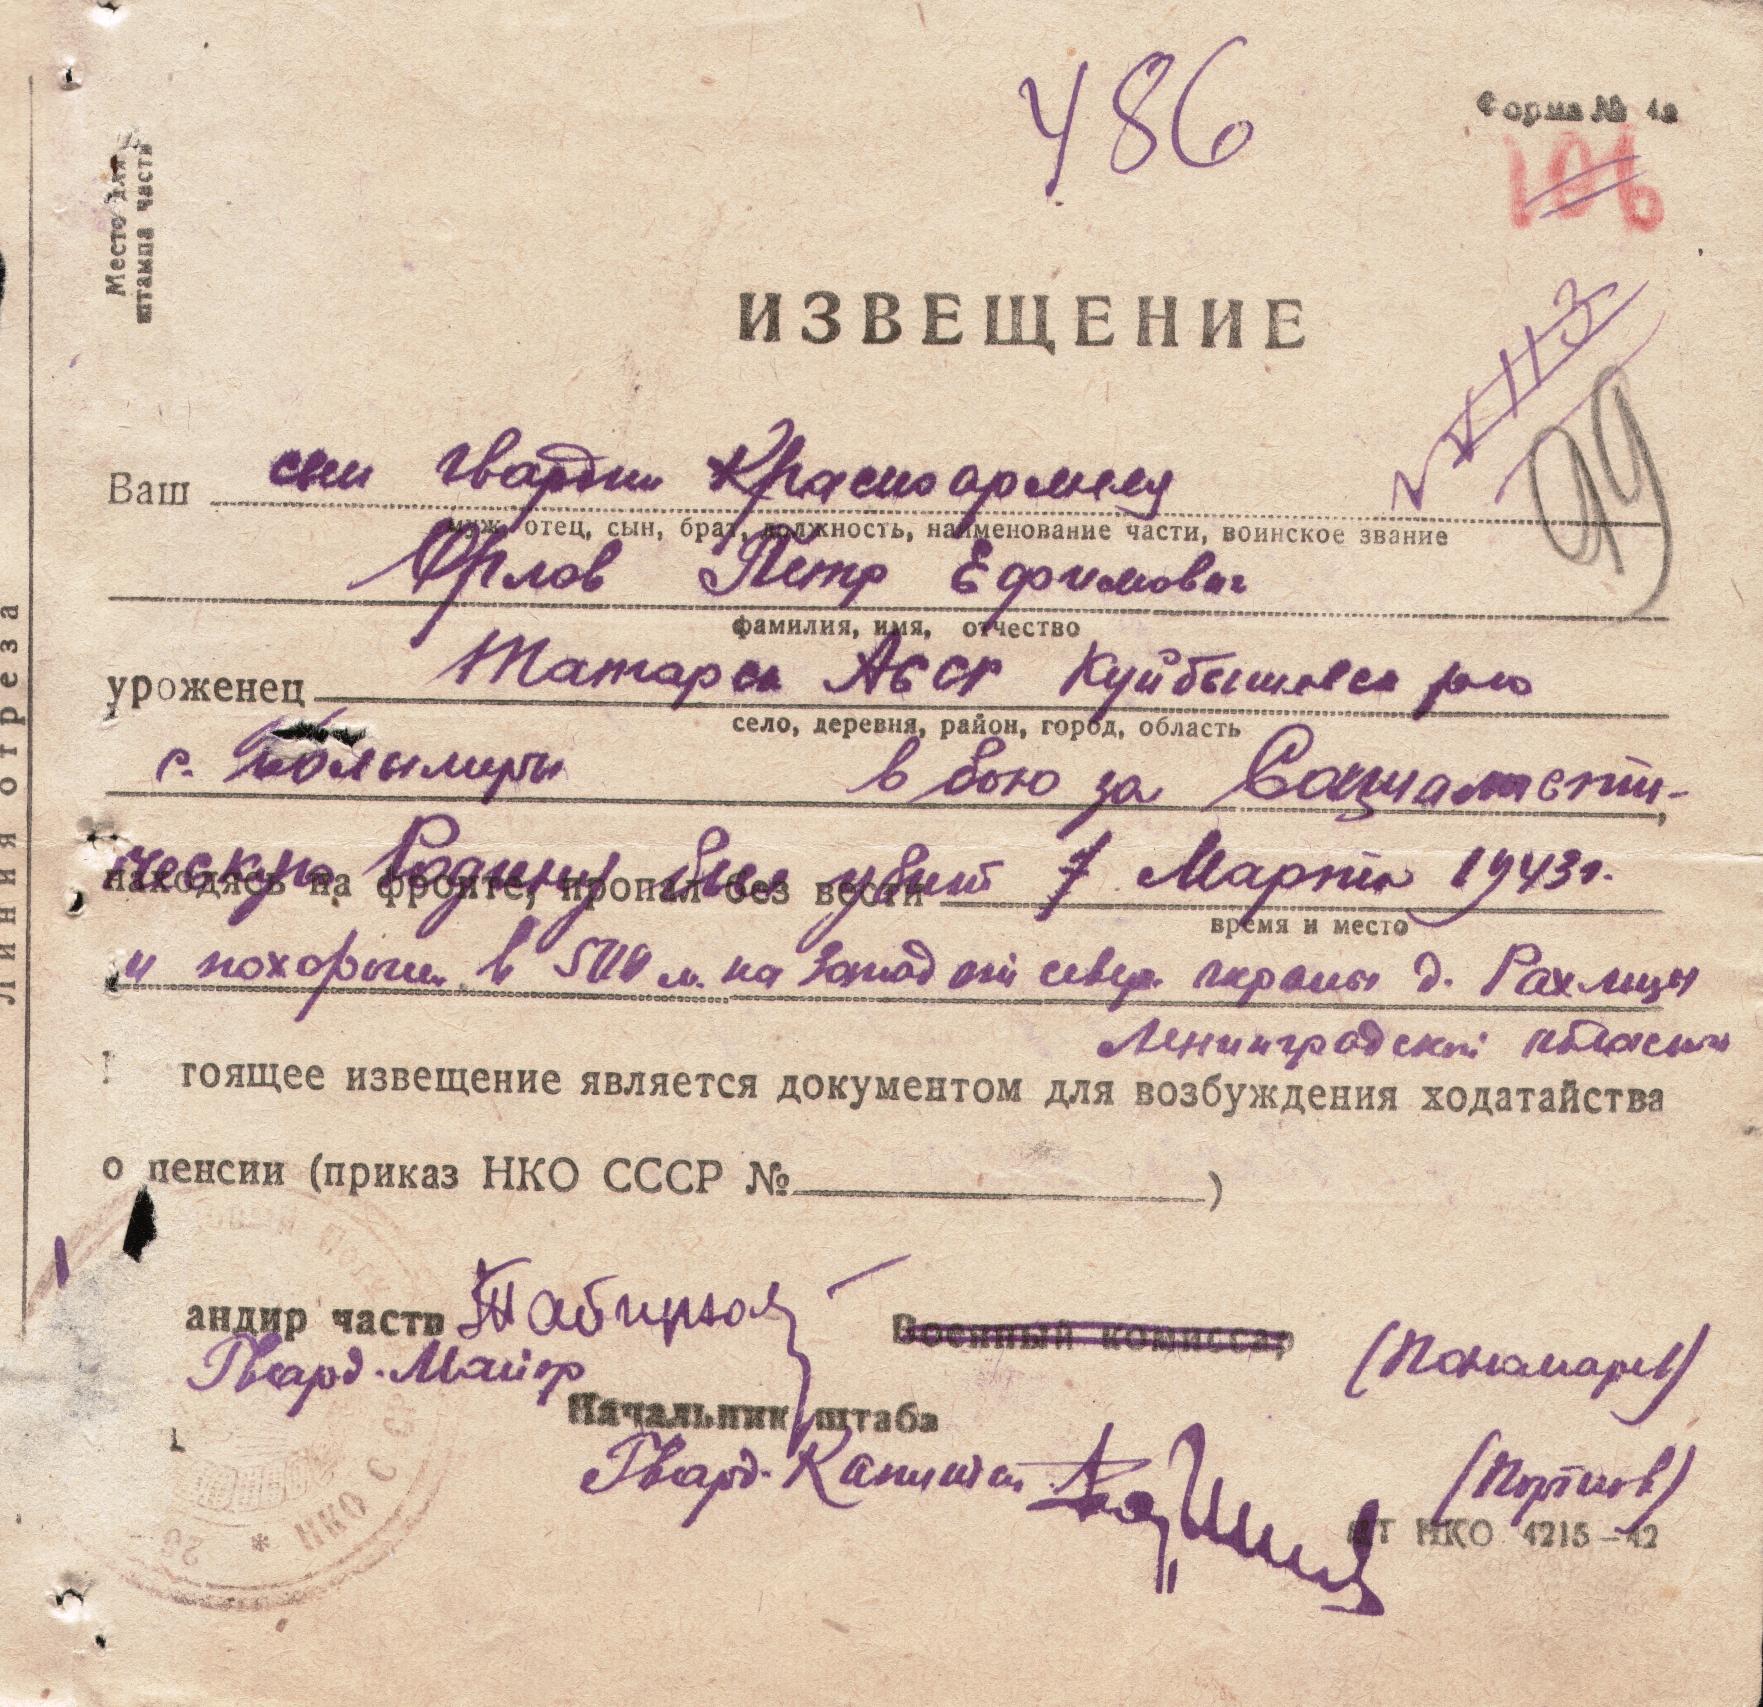 486
Форма № 4а
106
Место для
штампа части
Линия отреза
ИЗВЕЩЕНИЕ
99
Ваш сын гвардии Красноармеец
муж, отец, сын, брат, должность, наименование части, воинское звание
Орлов Петр Ефимович
фамилия, имя, отчество
уроженец Татарск АССР Куйбышевск р-на
село, деревня, район, город, область
с. в бою за Социалисти-
ческую Родину был убит 7 Марта 1943 г.
находясь на фронте, пропал без вести
время и место
и похорон. в 500 м. на запад от север. окраины д. Рахлицы
Ленинградской области
тоящее извещение является документом для возбуждения ходатайства
о пенсии (приказ НКО СССР № )
андир части Военный комиссар (Пономарев)
Гвард. Майор
Начальник штаба
Гвард. Капитан (Портнов)
НКО 4215-42
* НКО СССР